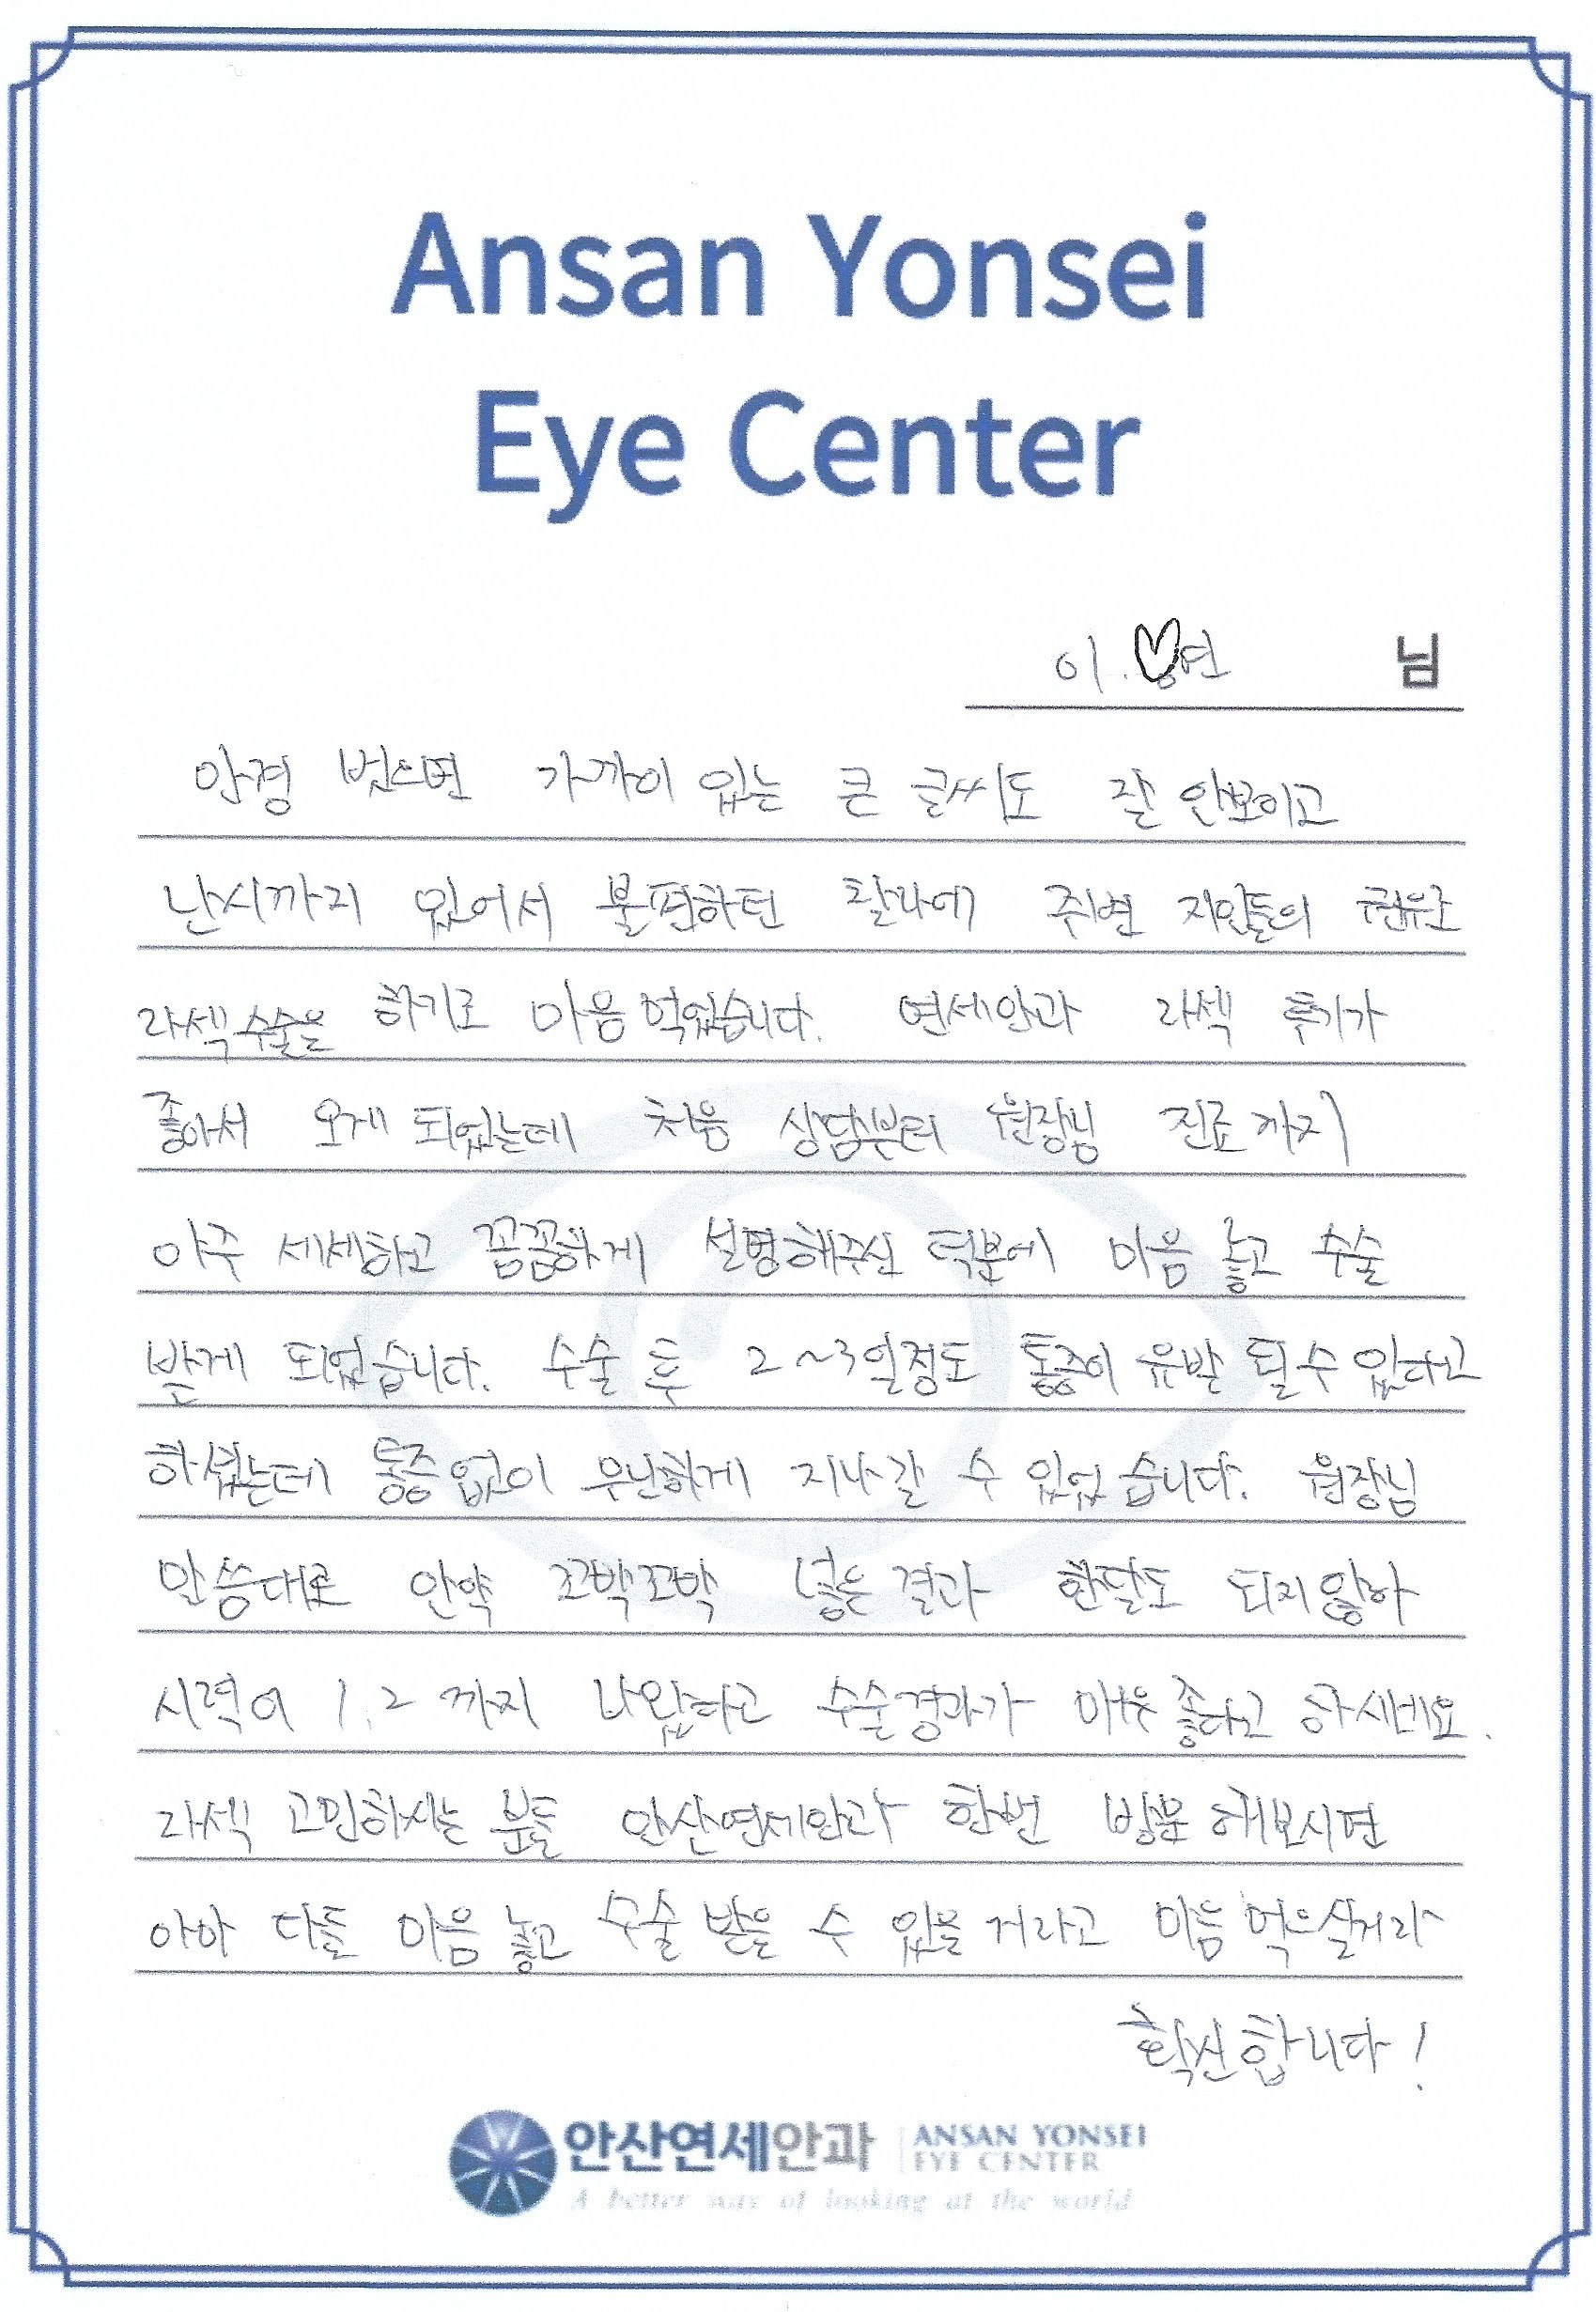 Ansan Yonsei
Eye Center
이.♡연 님
안경 벗으면 가까이 있는 큰 글씨도 잘 안보이고
난시까지 있어서 불편하던 찰나에 주변 지인들의 권유로
라섹수술을 하기로 마음먹었습니다. 연세안과 라섹 후기가
좋아서 오게 되었는데 처음 상담부터 원장님 진료까지
아주 세세하고 꼼꼼하게 설명해주신 덕분에 마음 놓고 수술
받게 되었습니다. 수술 후 2~3일정도 통증이 유발 될 수 있다고
하셨는데 통증 없이 무난하게 지나갈 수 있었습니다. 원장님
말씀대로 안약 꼬박꼬박 넣은 결과 한달도 되지않아
시력이 1.2 까지 나왔다고 수술경과가 매우 좋다고 하시네요.
라섹 고민하시는 분들 안산연세안과 한번 방문 해보시면
아마 다들 마음 놓고 수술 받을 수 있을 거라고 마음 먹으실거라
확신합니다!
안산연세안과 ANSAN YONSEI
EYE CENTER
A better way of looking at the world